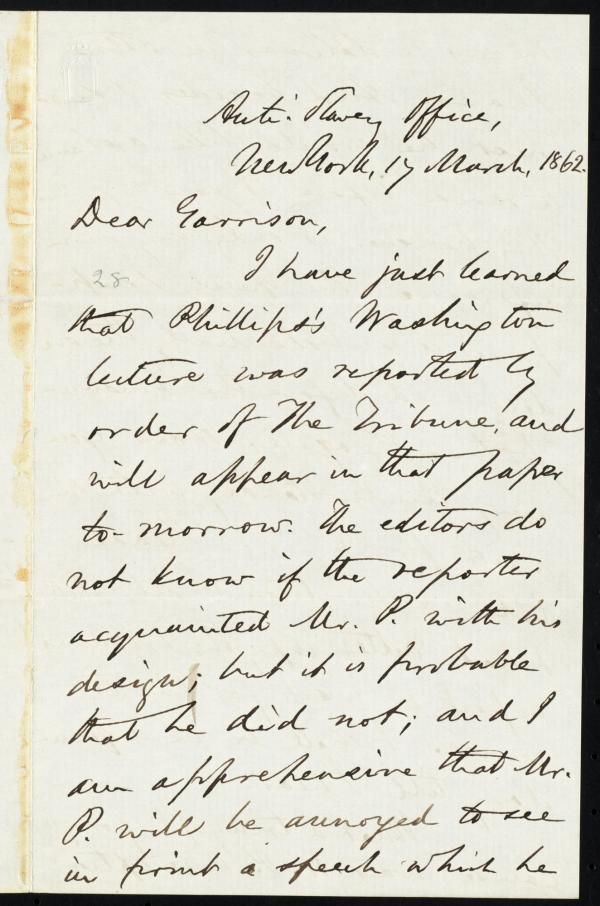 Anti-Slavery Office,
New York, 17 March, 1862.
Dear Garrison,
28
I have just learned
that Phillips's Washington
lecture was reported by
order of The Tribune, and
will appear in that paper
to-morrow. The editors do
not know if the reporter
acquainted Mr. P. with his
design; but it is probable
that he did not; and I
am apprehensive that Mr.
P. will be annoyed to see
in print a speech which he